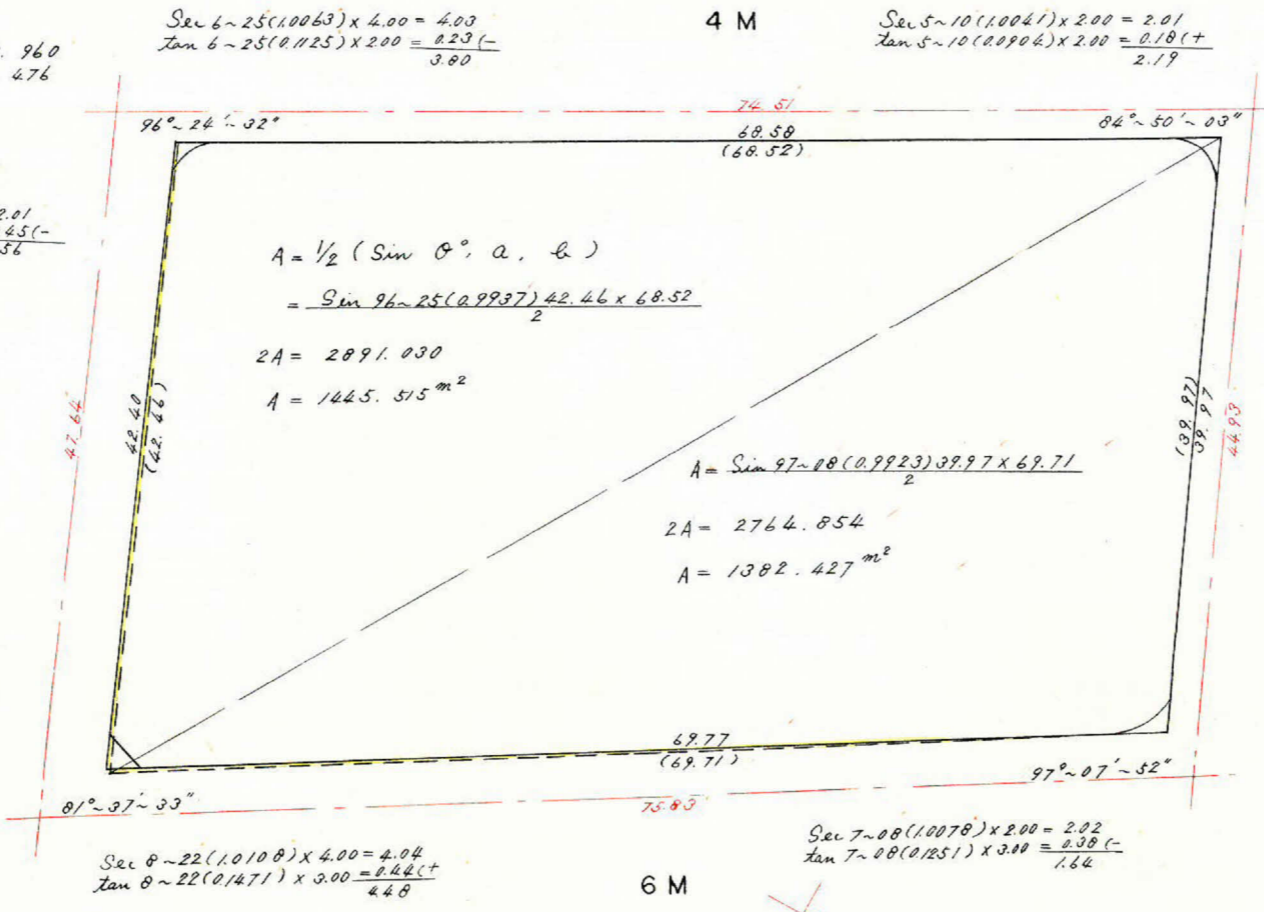 Sec 6~25(1.0063) x 4.00 = 4.03
tan 6~25(0.1125) x 2.00 = 0.23 (-
3.80
4 M
Sec 5~10(1.0041) x 2.00 = 2.01
tan 5~10(0.0904) x 2.00 = 0.18 (+
2.19
960
4.76
74.51
96°~24'~32"
68.58
(68.52)
84°~50'~03"
2.01
45(-
56
A = 1/2 ( Sin θ°, a, b )
= Sin 96~25(0.9937) 42.46 x 68.52
2
2A = 2891.030
A = 1445.515 m²
47.64
42.40
(42.46)
(39.97)
39.97
44.93
A = Sin 97~08(0.9923) 39.97 x 69.71
2
2A = 2764.854
A = 1382.427 m²
69.77
(69.71)
81°~37'~33"
75.83
97°~07'~52"
Sec 8~22(1.0108) x 4.00 = 4.04
tan 8~22(0.1471) x 3.00 = 0.44 (+
4.48
6 M
Sec 7~08(1.0078) x 2.00 = 2.02
tan 7~08(0.1251) x 3.00 = 0.38 (-
1.64